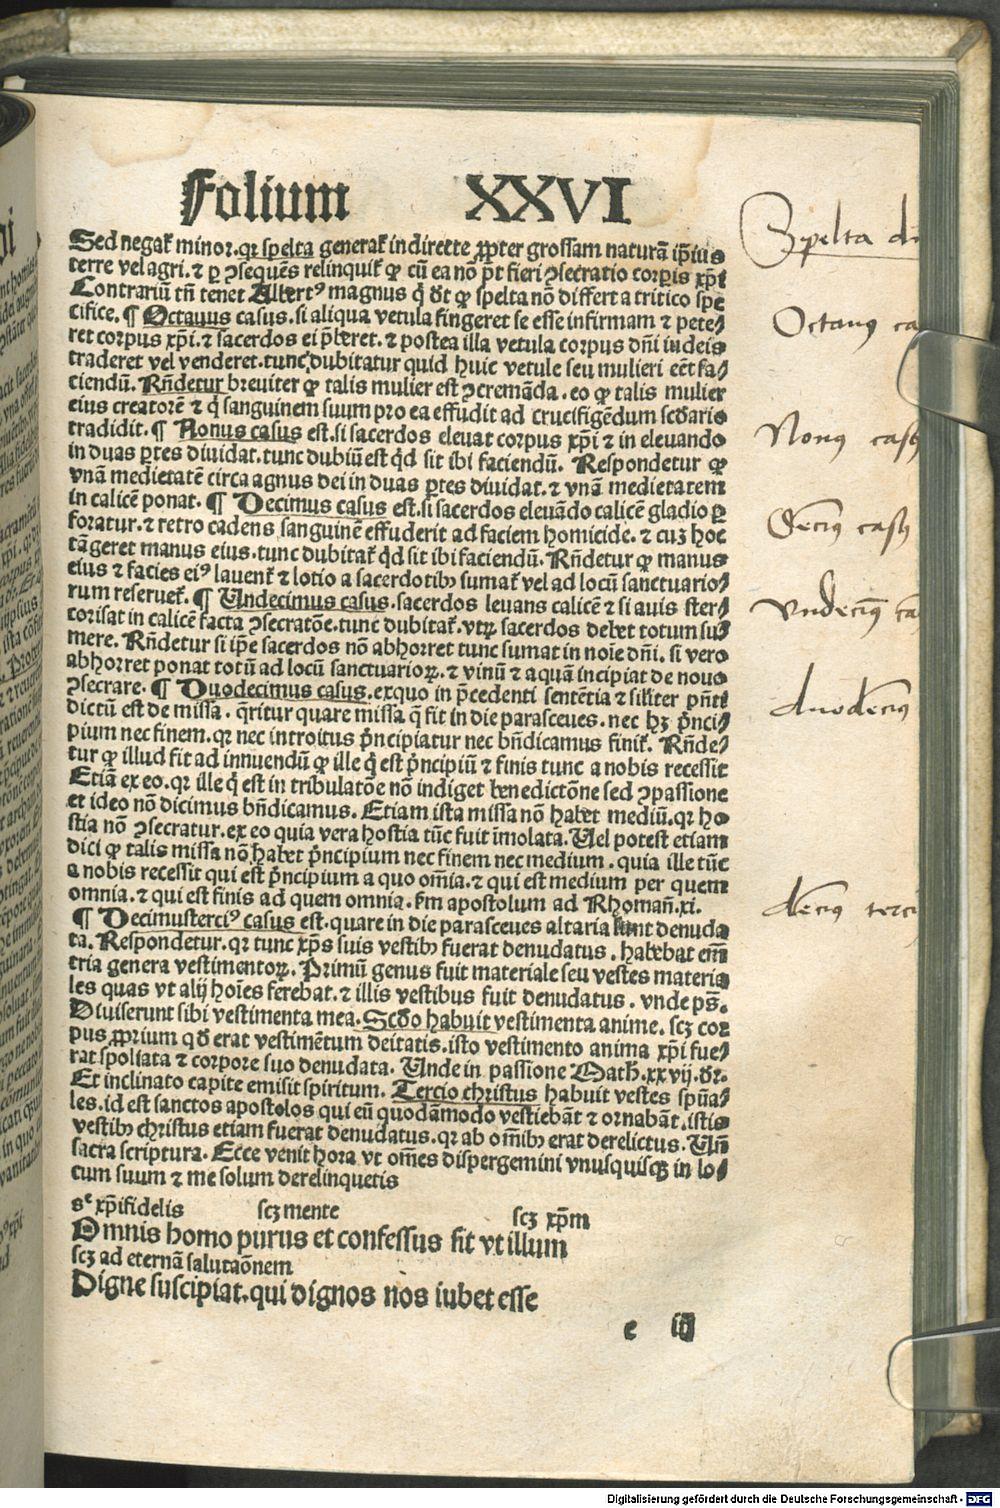 Folium XXVI
Sed negat̃ minor. qꝛ spelta generat̃ indirecte ꝓpter grossam naturã ip̃ius
terre vel agri. ⁊ ꝑ ꝯsequẽs relinquit̃ ꝙ cũ ea nõ põt fieri ꝯsecratio corꝑis xp̃i
Contrariũ tñ tenet Albertꝰ magnus q̃ dt ꝙ spelta nõ differt a tritico spe
cifice. ¶ Octauus casus. si aliqua vetula fingeret se esse infirmam ⁊ pete⸗
ret corpus xp̃i. ⁊ sacerdos ei p̃beret. ⁊ postea illa vetula corpus dñi iudeis
traderet vel venderet. tunc dubitatur quid huic vetule seu mulieri eẽt fa⸗
ciendũ. Rñdetur breuiter ꝙ talis mulier est ꝯcremãda. eo ꝙ talis mulier
eius creatorẽ ⁊ q̃ sanguinem suum pro ea effudit ad crucifigẽdum scd̃ario
tradidit. ¶ Nonus casus est. si sacerdos eleuat corpus xp̃i ⁊ in eleuando
in duas ꝑtes diuidat. tunc dubiũ est qd̃ sit ibi faciendũ. Respondetur ꝙ
vnã medietatẽ circa agnus dei in duas ꝑtes diuidat. ⁊ vnã medietatem
in calicẽ ponat. ¶ Decimus casus est. si sacerdos eleuãdo calicẽ gladio ꝑ
foratur. ⁊ retro cadens sanguinẽ effuderit ad faciem homicide. ⁊ cuꝫ hoc
tãgeret manus eius. tunc dubitat̃ qd̃ sit ibi faciendũ. Rñdetur ꝙ manus
eius ⁊ facies eiꝰ lauent̃ ⁊ lotio a sacerdotibꝫ sumat̃ vel ad locũ sanctuario⸗
rum reseruet̃. ¶ Undecimus casus. sacerdos leuans calicẽ ⁊ si auis ster⸗
corisat in calicẽ facta ꝯsecratõe. tunc dubitat̃. vtꝝ sacerdos debet totum su⸗
mere. Rñdetur si ip̃e sacerdos nõ abhorret tunc sumat in noĩe dñi. si vero
abhorret ponat totũ ad locũ sanctuarioꝝ. ⁊ vinũ ⁊ aquã incipiat de nouo
ꝯsecrare. ¶ Duodecimus casus. exquo in p̃cedenti sentẽtia ⁊ silĩter pñti
dictũ est de missa. q̃ritur quare missa q̃ fit in die parasceues. nec hꝫ p̃nci⸗
pium nec finem. qꝛ nec introitus p̃ncipiatur nec bñdicamus finit̃. Rñde⸗
tur ꝙ illud fit ad innuendũ ꝙ ille q̃ est p̃ncipiũ ⁊ finis tunc a nobis recessit
Etiã ex eo. qꝛ ille q̃ est in tribulatõe nõ indiget benedictõne sed ꝯpassione
et ideo nõ dicimus bñdicamus. Etiam ista missa nõ habet mediũ. qꝛ ho⸗
stia nõ ꝯsecratur. ex eo quia vera hostia tũc fuit ĩmolata. Uel potest etiam
dici ꝙ talis missa nõ habet p̃ncipium nec finem nec medium. quia ille tũc
a nobis recessit qui est p̃ncipium a quo oĩa. ⁊ qui est medium per quem
omnia. ⁊ qui est finis ad quem omnia. ẜm apostolum ad Rhomañ. xi.
¶ Decimusterciꝰ casus est. quare in die parasceues altaria sunt denuda
ta. Respondetur. qꝛ tunc xp̃s suis vestibꝫ fuerat denudatus. habebat em̃
tria genera vestimentoꝝ. Primũ genus fuit materiale seu vestes materia
les quas vt alij hoĩes ferebat. ⁊ illis vestibus fuit denudatus. vnde ps̃.
Diuiserunt sibi vestimenta mea. Scd̃o habuit vestimenta anime. scꝫ cor
pus ꝓprium qd̃ erat vestimẽtum deitatis. isto vestimento anima xp̃i fue⸗
rat spoliata ⁊ corpore suo denudata. Unde in passione Math. xxvij. dr̃.
Et inclinato capite emisit spiritum. Tercio christus habuit vestes spũa⸗
les. id est sanctos apostolos qui eũ quodãmodo vestiebãt ⁊ ornabãt. istis
vestibꝫ christus etiam fuerat denudatus. qꝛ ab oĩbꝫ erat derelictus. Uñ
sacra scriptura. Ecce venit hora vt om̃es dispergemini vnusquisqꝫ in lo⸗
cum suum ⁊ me solum derelinquetis
xp̃ifidelis scꝫ mente scꝫ xp̃m
Omnis homo purus et confessus sit vt illum
scꝫ ad eternã salutaõnem
Digne suscipiat. qui dignos nos iubet esse
e iij
Spelta
Octauꝰ ca
Nonꝰ casꝰ
Deciꝰ casꝰ
Vndeciꝰ ca
duodeciꝰ
deciꝰ terci
Digitalisierung gefördert durch die Deutsche Forschungsgemeinschaft - DFG